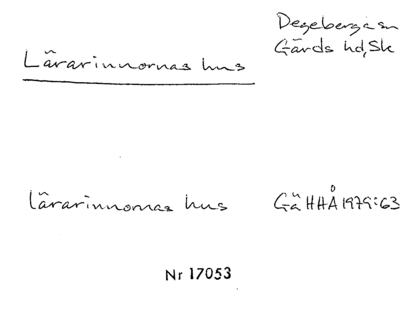 Lärarinnornas hus
Degeberga sn
Gärds hd, Sk
lärarinnornas hus
GäHHÅ 1979:63
Nr 17053